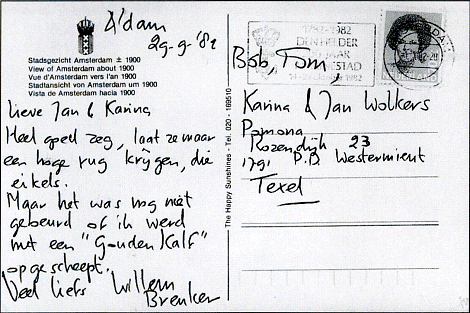 A'dam
29-9-'82
Stadsgezicht Amsterdam ± 1900
View of Amsterdam about 1900
Vue d'Amsterdam vers l'an 1900
Stadtansicht von Amsterdam um 1900
Vista de Amsterdam hacia 1900
Lieve Jan & Karina
Heel goed zeg, laat ze maar
een hoge rug krijgen, die
eikels.
Maar het was nog niet
gebeurd of ik werd
met een "Gouden Kalf"
opgescheept.
Veel liefs Willem
Brenker
The Happy Sunshines - Tel. 020 - 169510
1782-1982
DEN HELDER
JAAR
STAD
1982
Bob, Tom,
Karina & Jan Wolkers
Pomona
Rozendijk 23
1791 P.D. Westermient
Texel